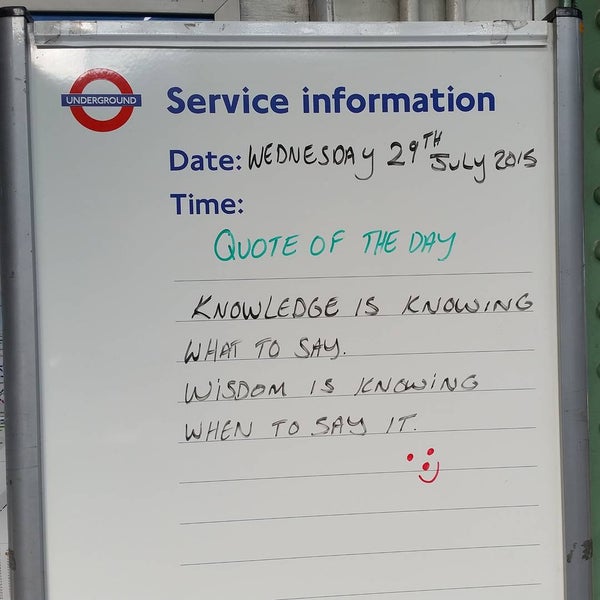 UNDERGROUND
Service information
Date: WEDNESDAY 29TH JULY 2015
Time:
QUOTE OF THE DAY
KNOWLEDGE IS KNOWING
WHAT TO SAY.
WISDOM IS KNOWING
WHEN TO SAY IT.